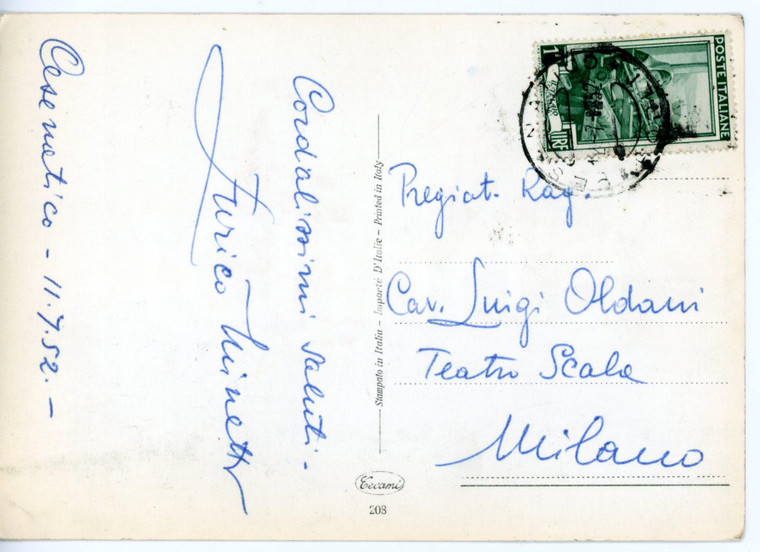 Cesenatico - 11.7.52. -
Cordialissimi saluti -
Enrico Minetti
Stampato in Italia - Importé D'Italie - Printed in Italy
Pregiat. Rag.
Cav. Luigi Oldani
Teatro Scala
Milano
POSTE ITALIANE
LIRE
Cecami
208